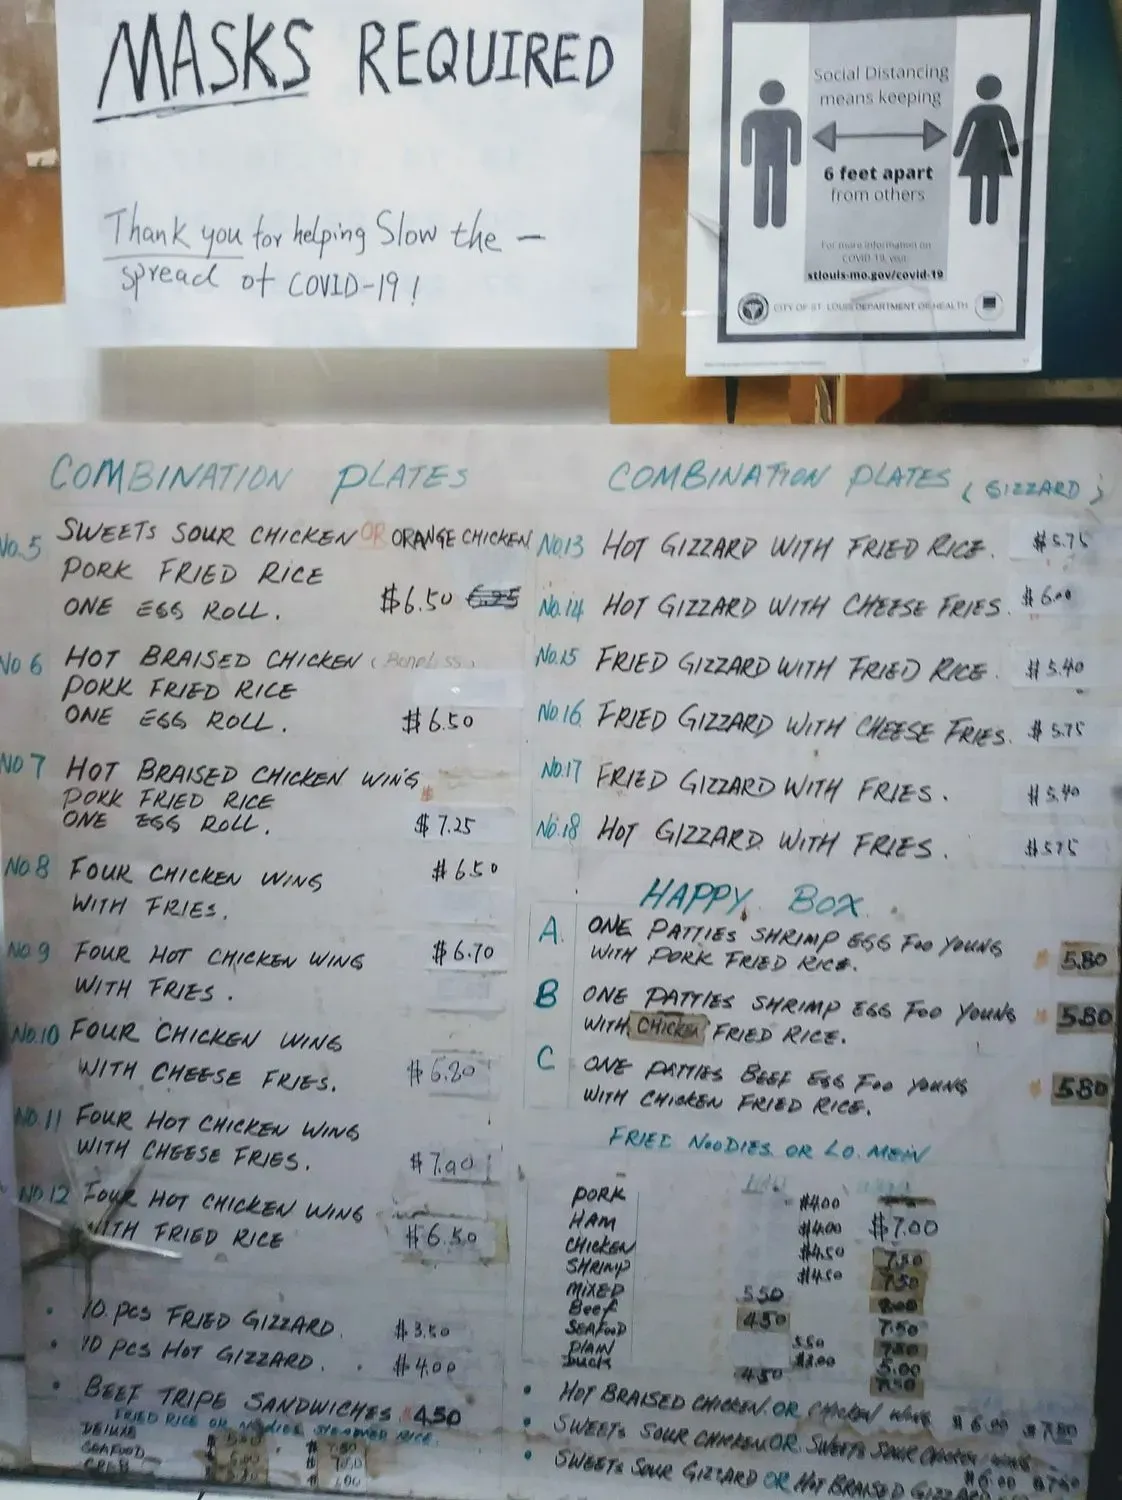 MASKS REQUIRED
Thank you for helping Slow the –
spread of COVID-19!
Social Distancing
means keeping
6 feet apart
from others
For more information on
COVID-19, visit
stlouis-mo.gov/covid-19
CITY OF ST. LOUIS DEPARTMENT OF HEALTH
COMBINATION PLATES
No.5 SWEETS SOUR CHICKEN OR ORANGE CHICKEN
PORK FRIED RICE
ONE EGG ROLL. $6.50 6.25
No 6 HOT BRAISED CHICKEN (Boneless)
PORK FRIED RICE
ONE EGG ROLL. $6.50
No 7 HOT BRAISED CHICKEN WING
PORK FRIED RICE
ONE EGG ROLL. $7.25
No 8 FOUR CHICKEN WING $6.50
WITH FRIES.
No 9 FOUR HOT CHICKEN WING $6.70
WITH FRIES.
No.10 FOUR CHICKEN WING
WITH CHEESE FRIES. $6.80
No.11 FOUR HOT CHICKEN WING
WITH CHEESE FRIES. $7.00
No 12 FOUR HOT CHICKEN WING
WITH FRIED RICE $6.50
• 10 PCS FRIED GIZZARD. $3.50
• 10 PCS HOT GIZZARD. $4.00
• BEEF TRIPE SANDWICHES 4.50
FRIED RICE OR NOODLE STEAMED RICE
DELUXE
SEAFOOD
CRAB
COMBINATION PLATES (GIZZARD)
No.13 HOT GIZZARD WITH FRIED RICE. $5.75
No.14 HOT GIZZARD WITH CHEESE FRIES. $6.00
No.15 FRIED GIZZARD WITH FRIED RICE. $5.40
No.16 FRIED GIZZARD WITH CHEESE FRIES. $5.75
No.17 FRIED GIZZARD WITH FRIES. $5.40
No.18 HOT GIZZARD WITH FRIES. $5.75
HAPPY BOX
A. ONE PATTIES SHRIMP EGG FOO YOUNG
WITH PORK FRIED RICE. 5.80
B ONE PATTIES SHRIMP EGG FOO YOUNG
WITH CHICKEN FRIED RICE. 5.80
C ONE PATTIES BEEF EGG FOO YOUNG
WITH CHICKEN FRIED RICE. 5.80
FRIED NOODLES OR LO MEIN
PORK $4.00
HAM $4.00 $7.00
CHICKEN $4.50 7.50
SHRIMP $4.50 7.50
MIXED 5.50 8.00
Beef 4.50 7.50
SEAFOOD 5.50 7.50
PLAIN $3.00 5.00
Duck 4.50 7.50
• HOT BRAISED CHICKEN OR CHICKEN WING $6.00 $7.50
• SWEETS SOUR CHICKEN OR SWEETS SOUR CHICKEN WING
• SWEETS SOUR GIZZARD OR HOT BRAISED GIZZARD